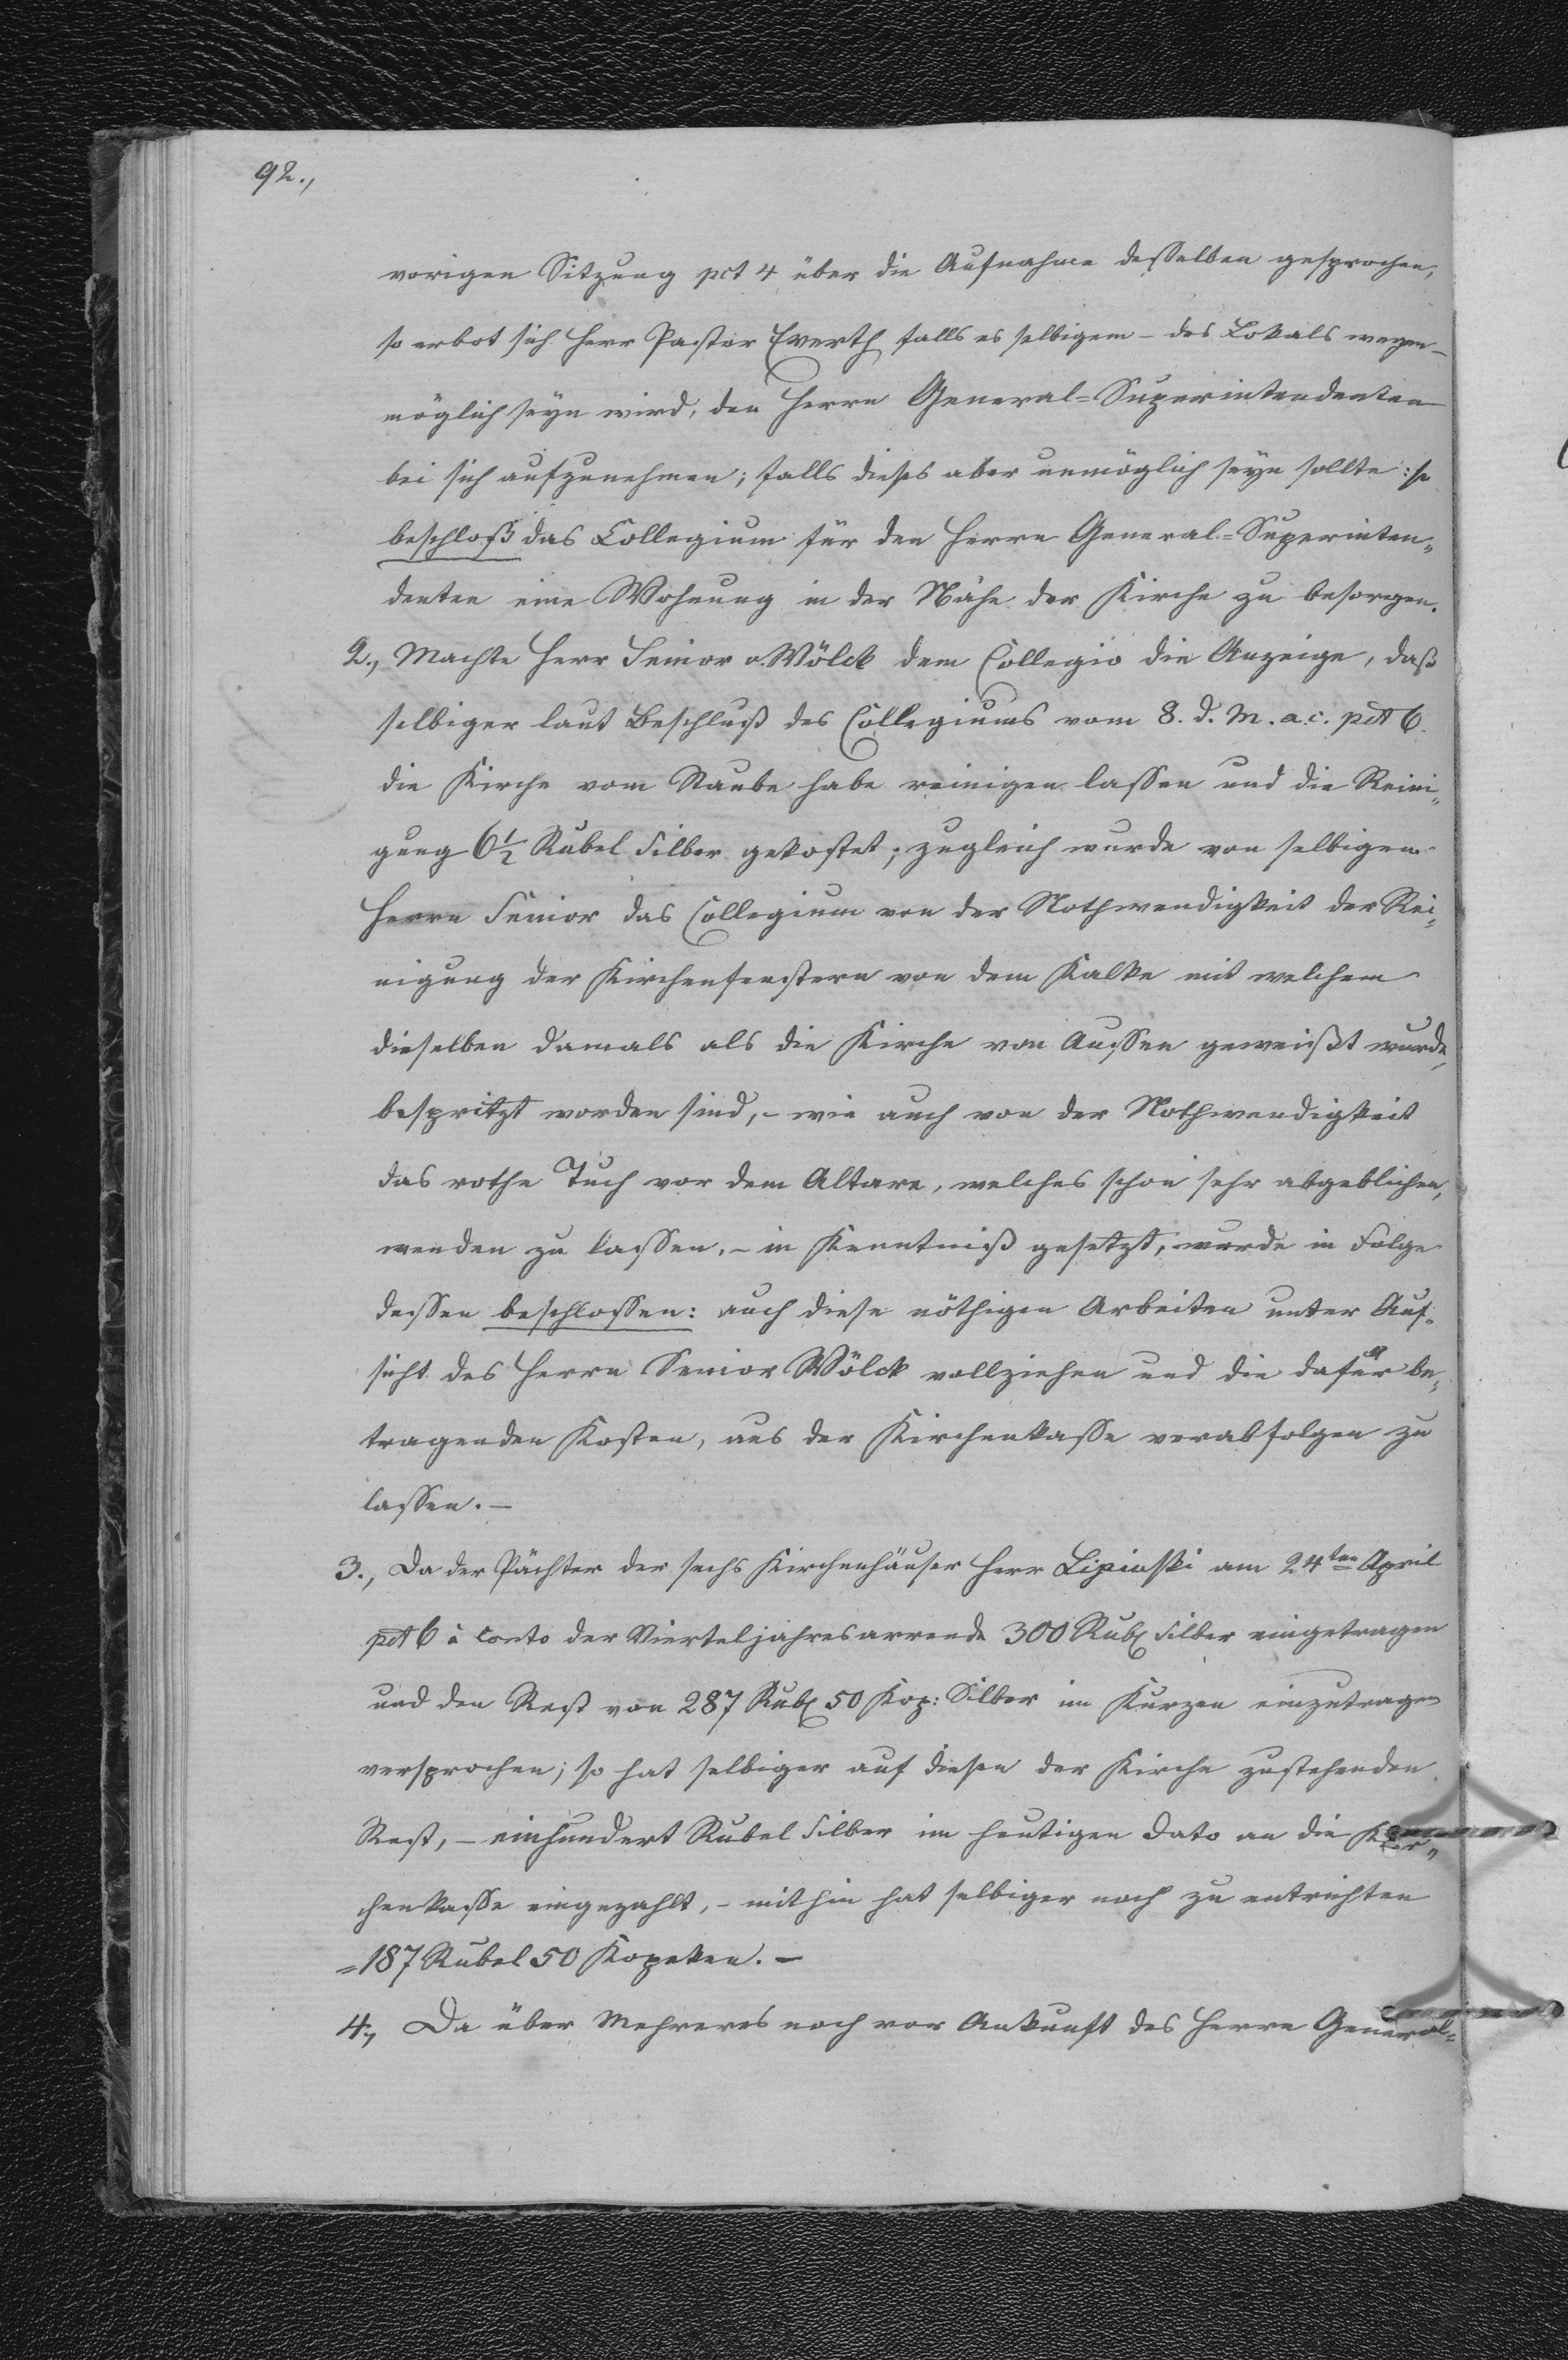 92.,
vorigen Sitzung pct 4 über die Aufnahme desselben gesprochen,
so erbot sich Herr Pastor Everth falls es selbigem – des Lokals wegen –
möglich seyn wird, den Herrn General-Superintendenten
bei sich aufzunehmen; falls dieses aber unmöglich seyn sollte: so
beschloß das Collegium für den Herrn General-Superinten„
denten eine Wohnung in der Nähe der Kirche zu besorgen.
2., Machte Herr Senior v. Wölck dem Collegio die Anzeige, daß
selbiger laut Beschluß des Collegiums vom 8. d. M. a. c. pct 6.
die Kirche vom Staube habe reinigen lassen und die Reini„
gung 6½ Rubel Silber gekostet; zugleich wurde von selbigem
Herrn Senior das Collegium von der Nothwendigkeit der Rei„
nigung der Kirchenfenstern von dem Kalke mit welchem
dieselben damals als die Kirche von Aussen geweißt wurde,
bespritzt worden sind, – wie auch von der Nothwendigkeit
das rothe Tuch vor dem Altare, welches schon sehr abgeblichen,
wenden zu lassen, – in Kenntniß gesetzt, wurde in Folge
dessen beschlossen: auch diese nöthigen Arbeiten unter Auf„
sicht des Herrn Senior Wölck vollziehen und die dafür be„
tragenden Kosten, aus der Kirchenkasse verabfolgen zu
lassen. –
3., Da der Pächter der sechs Kirchenhäuser Herr Lipinski am 24ten April
pct 6 à Conto der Vierteljahresarrende 300 Rub Silber eingetragen
und den Rest von 287 Rub 50 Kop: Silber im Kurzen einzutragen
versprochen; so hat selbiger auf diesen der Kirche zustehenden
Rest, – einhundert Rubel Silber im heutigen Dato an die Kir„
chenkasse eingezahlt, – mithin hat selbiger noch zu entrichten
= 187 Rubel 50 Kopeken. –
4., Da über Mehreres noch vor Ankunft des Herrn General-